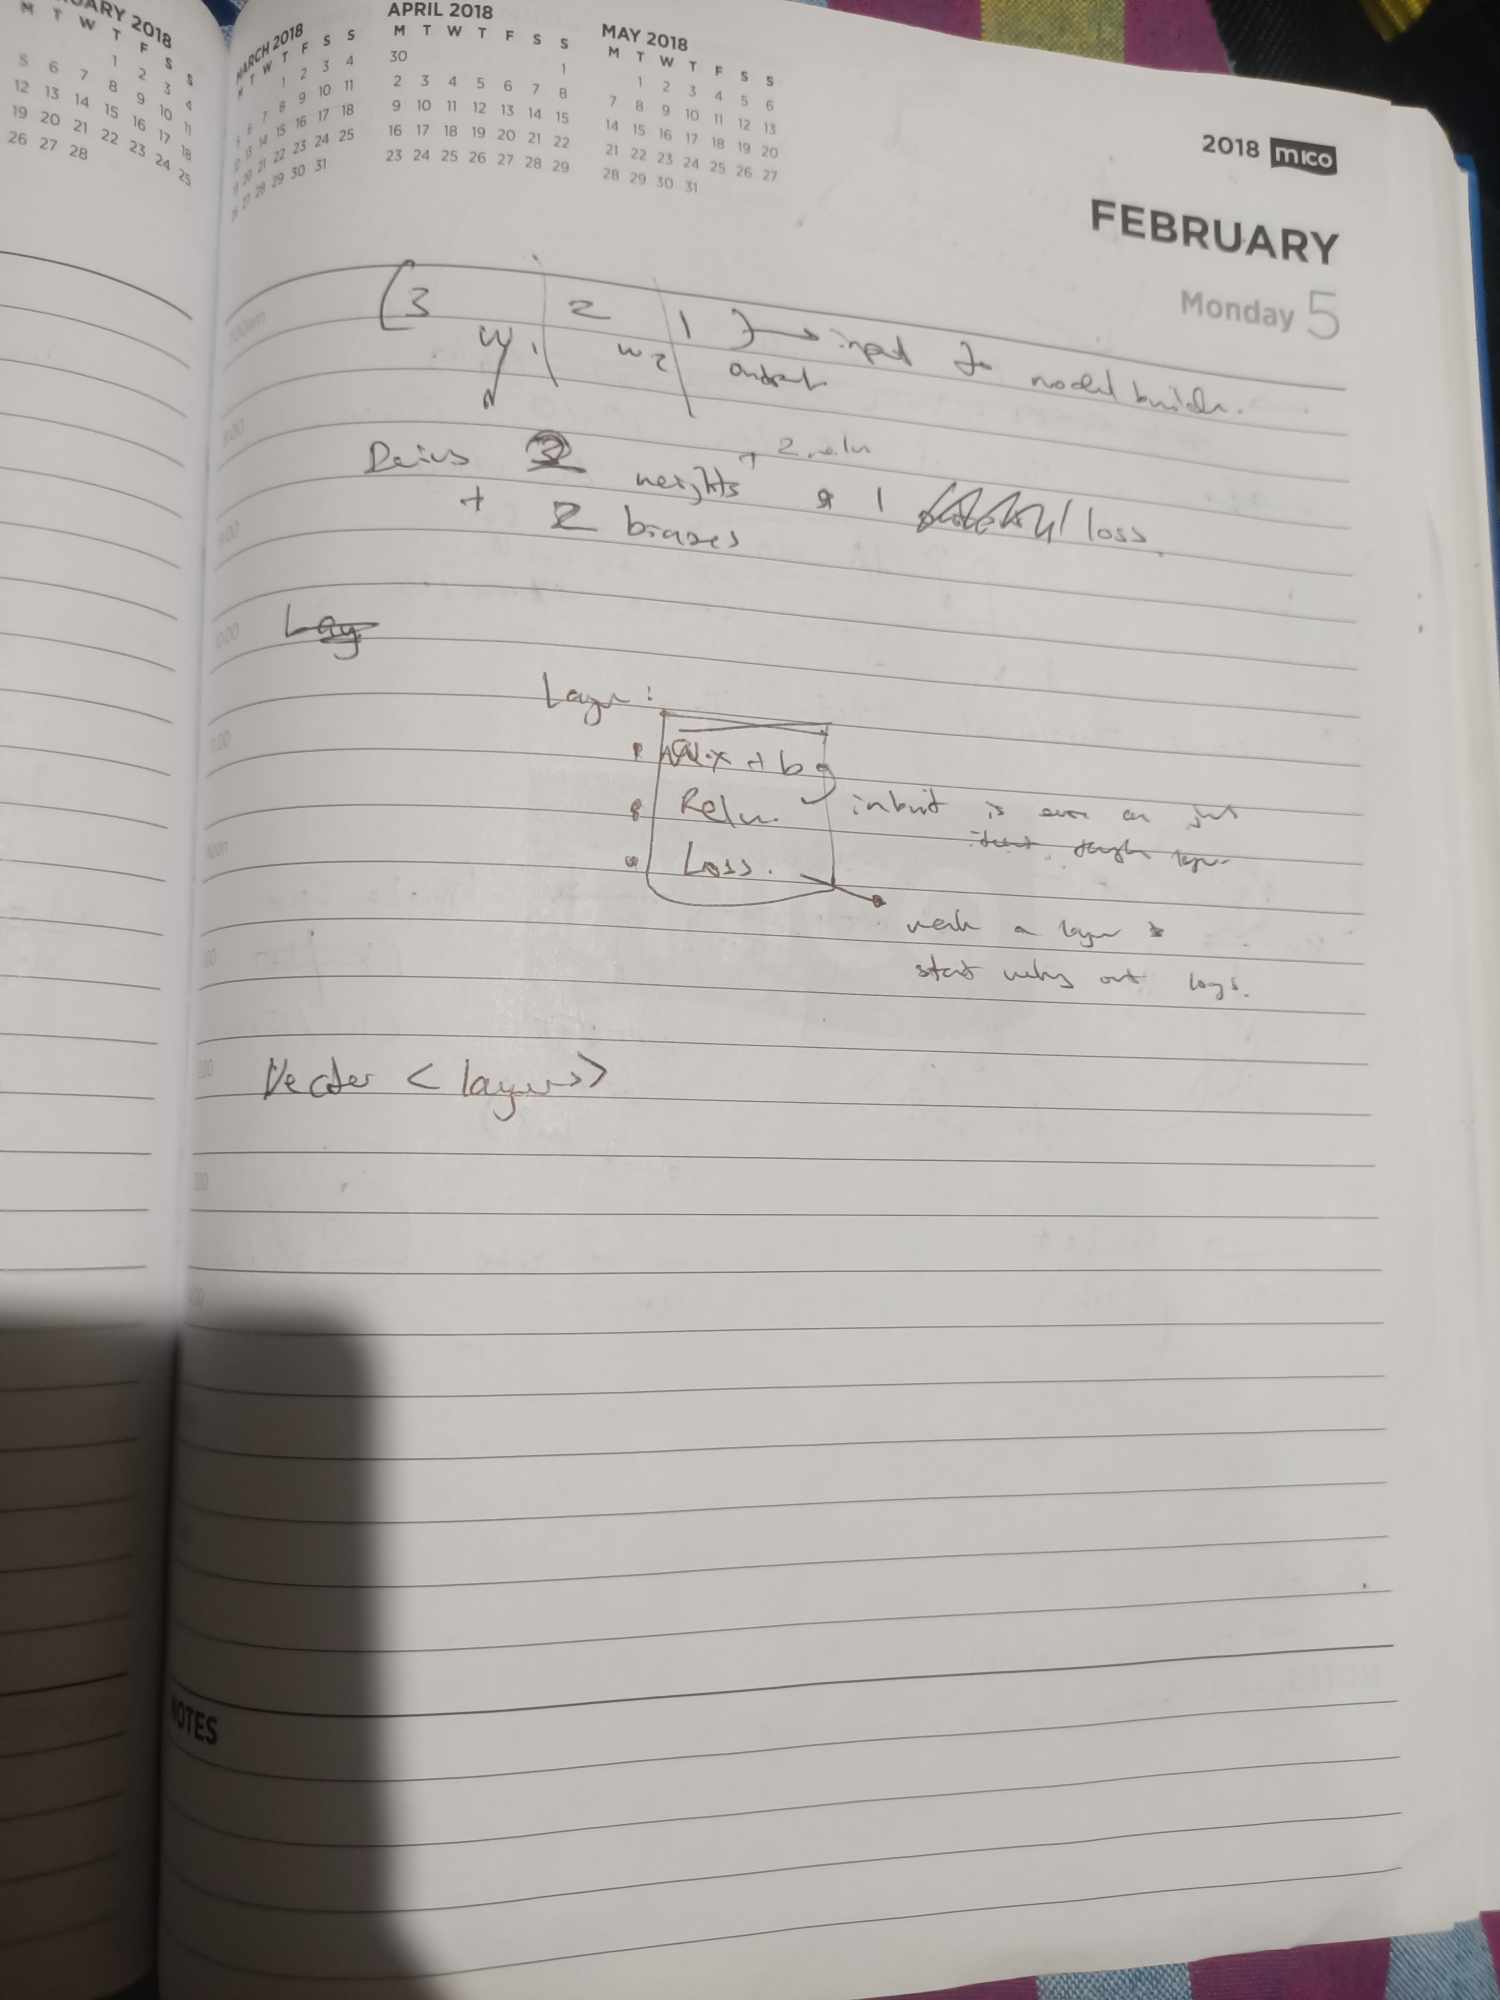 UARY 2018
M T W T F S S
1 2 3 4
5 6 7 8 9 10 11
12 13 14 15 16 17 18
19 20 21 22 23 24 25
26 27 28
MARCH 2018
M T W T F S S
1 2 3 4
5 6 7 8 9 10 11
12 13 14 15 16 17 18
19 20 21 22 23 24 25
26 27 28 29 30 31
APRIL 2018
M T W T F S S
30 1
2 3 4 5 6 7 8
9 10 11 12 13 14 15
16 17 18 19 20 21 22
23 24 25 26 27 28 29
MAY 2018
M T W T F S S
1 2 3 4 5 6
7 8 9 10 11 12 13
14 15 16 17 18 19 20
21 22 23 24 25 26 27
28 29 30 31
2018 mico
FEBRUARY
Monday 5
[3 2 1 } → input to model builder.
W1 W2 output
2 relu
weights & 1 loss.
+ 2 biases
Lay
Layer:
W.x + b
Relu
Loss.
is even on just
layer
a layer &
start out logs.
Vector < layers>
NOTES